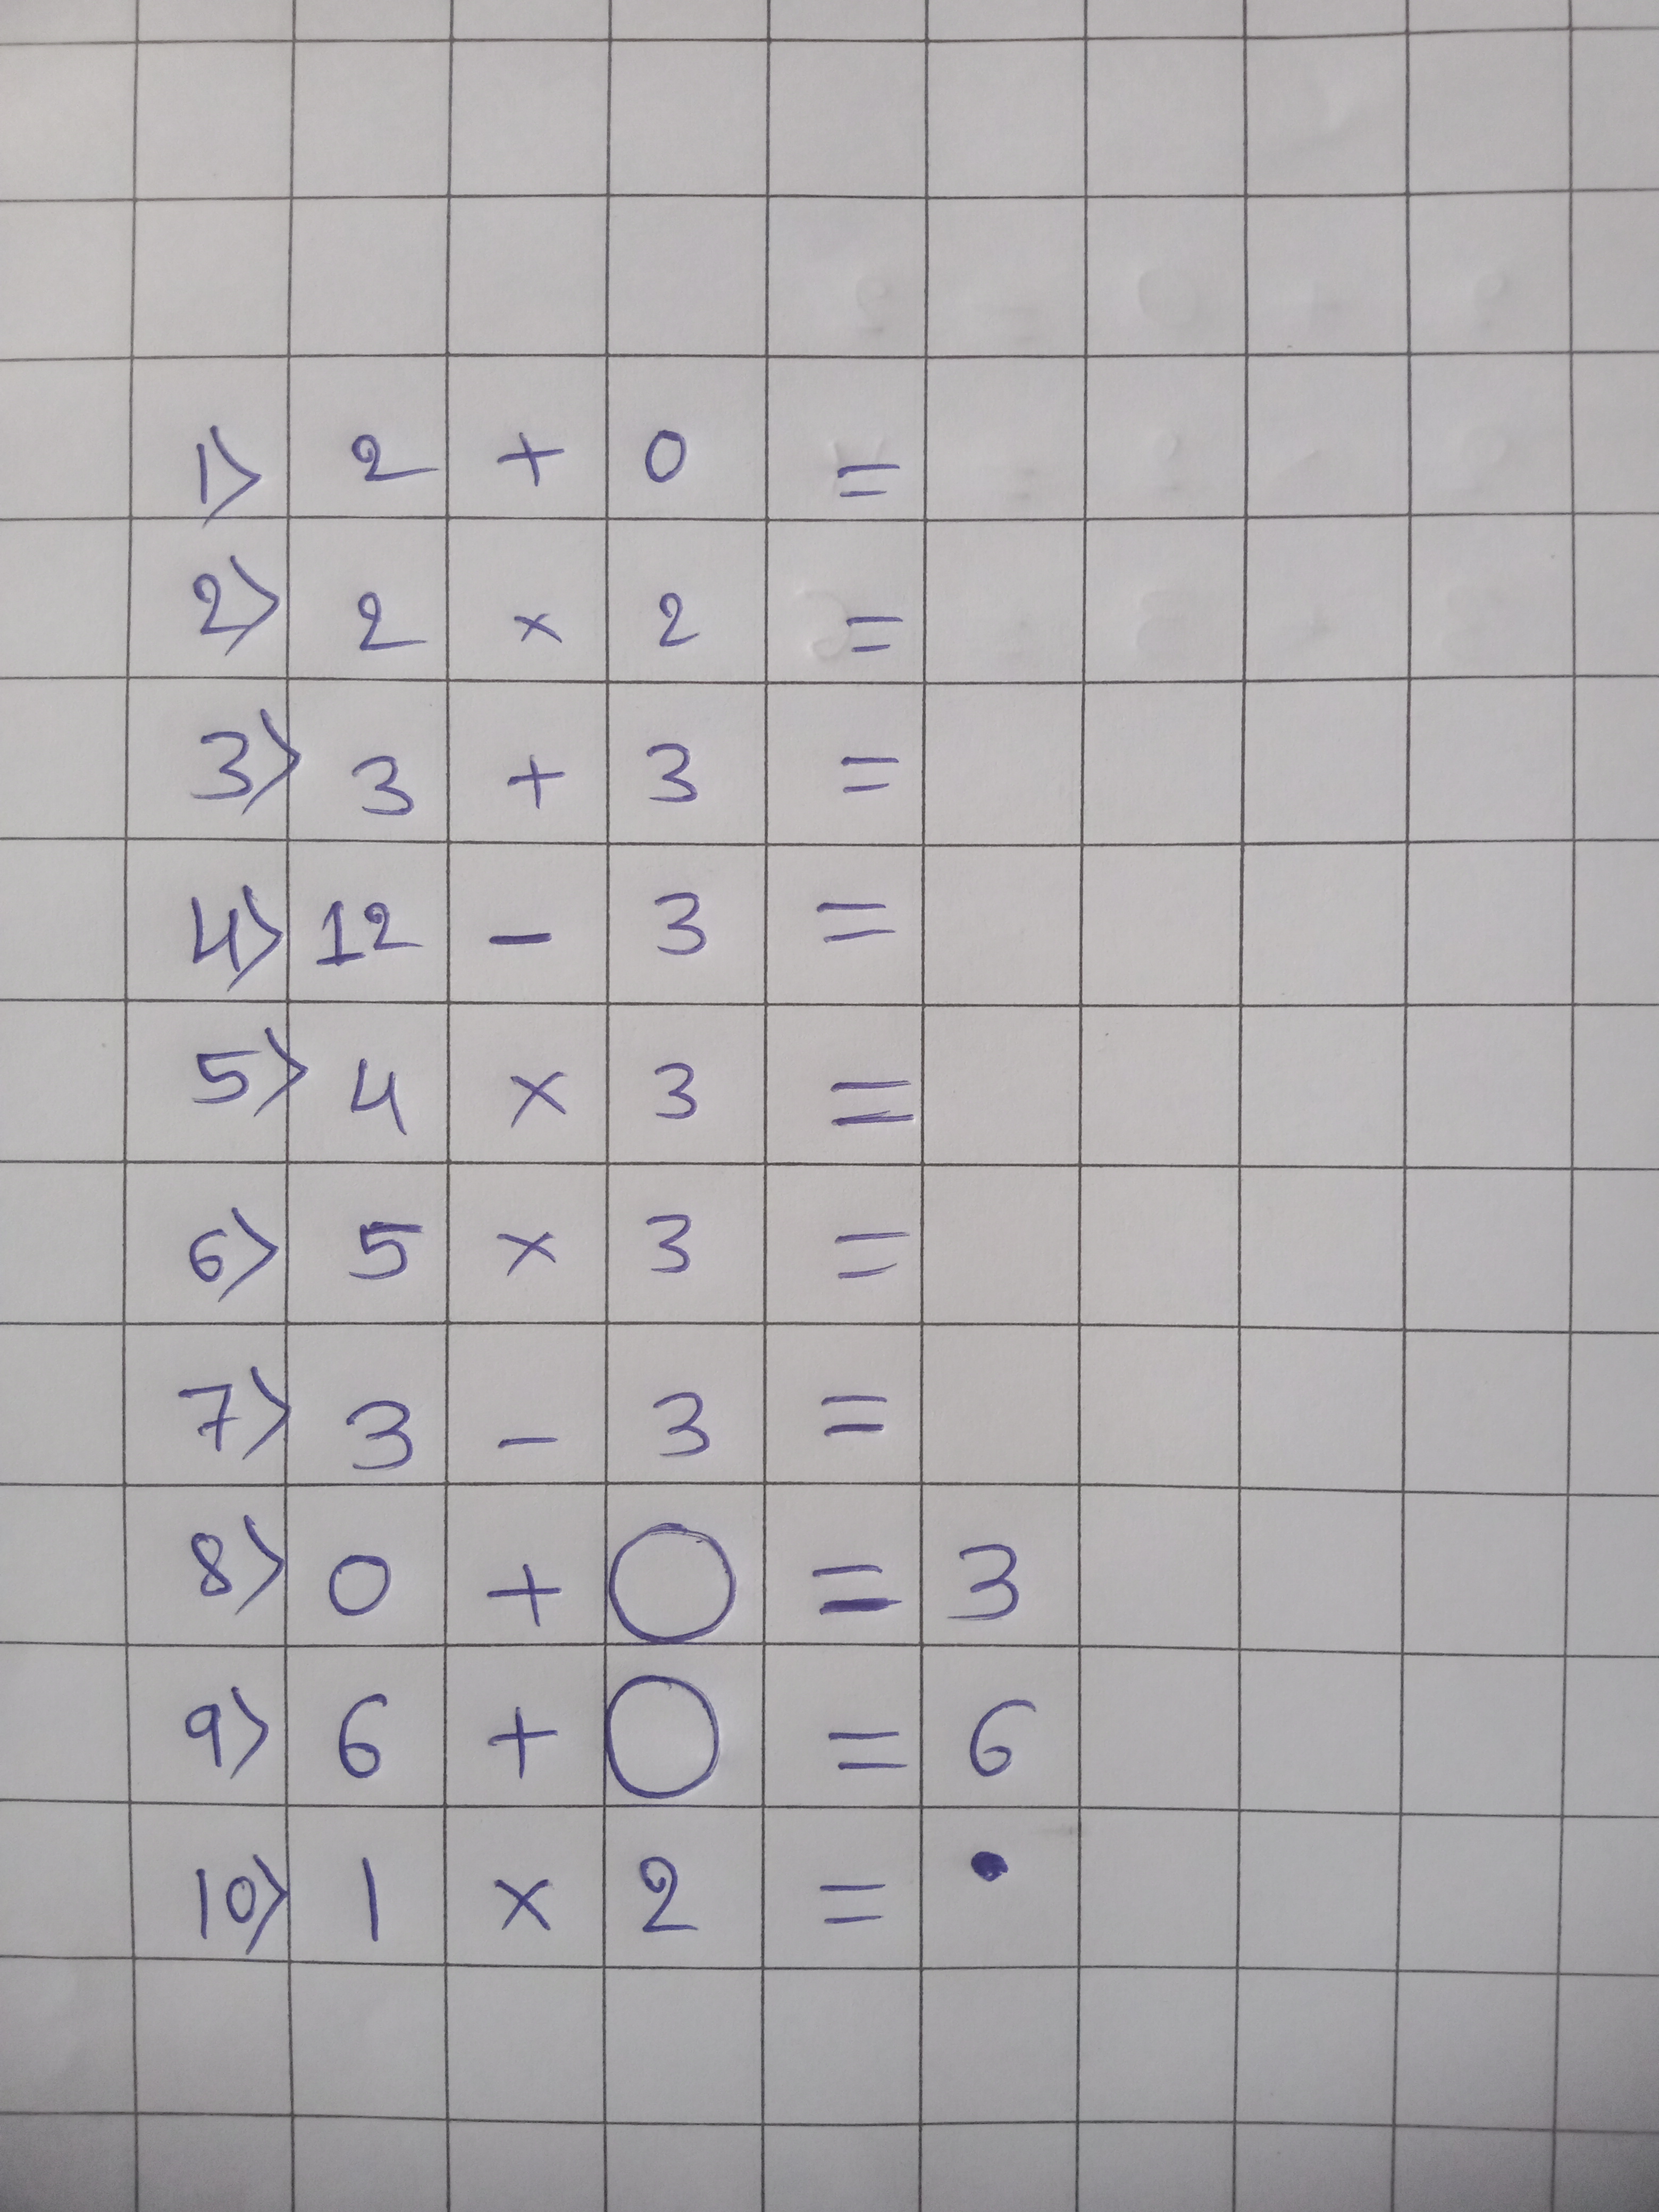 1) 2 + 0 =
2) 2 × 2 =
3) 3 + 3 =
4) 12 - 3 =
5) 4 × 3 =
6) 5 × 3 =
7) 3 - 3 =
8) 0 + ◯ = 3
9) 6 + ◯ = 6
10) 1 × 2 = •